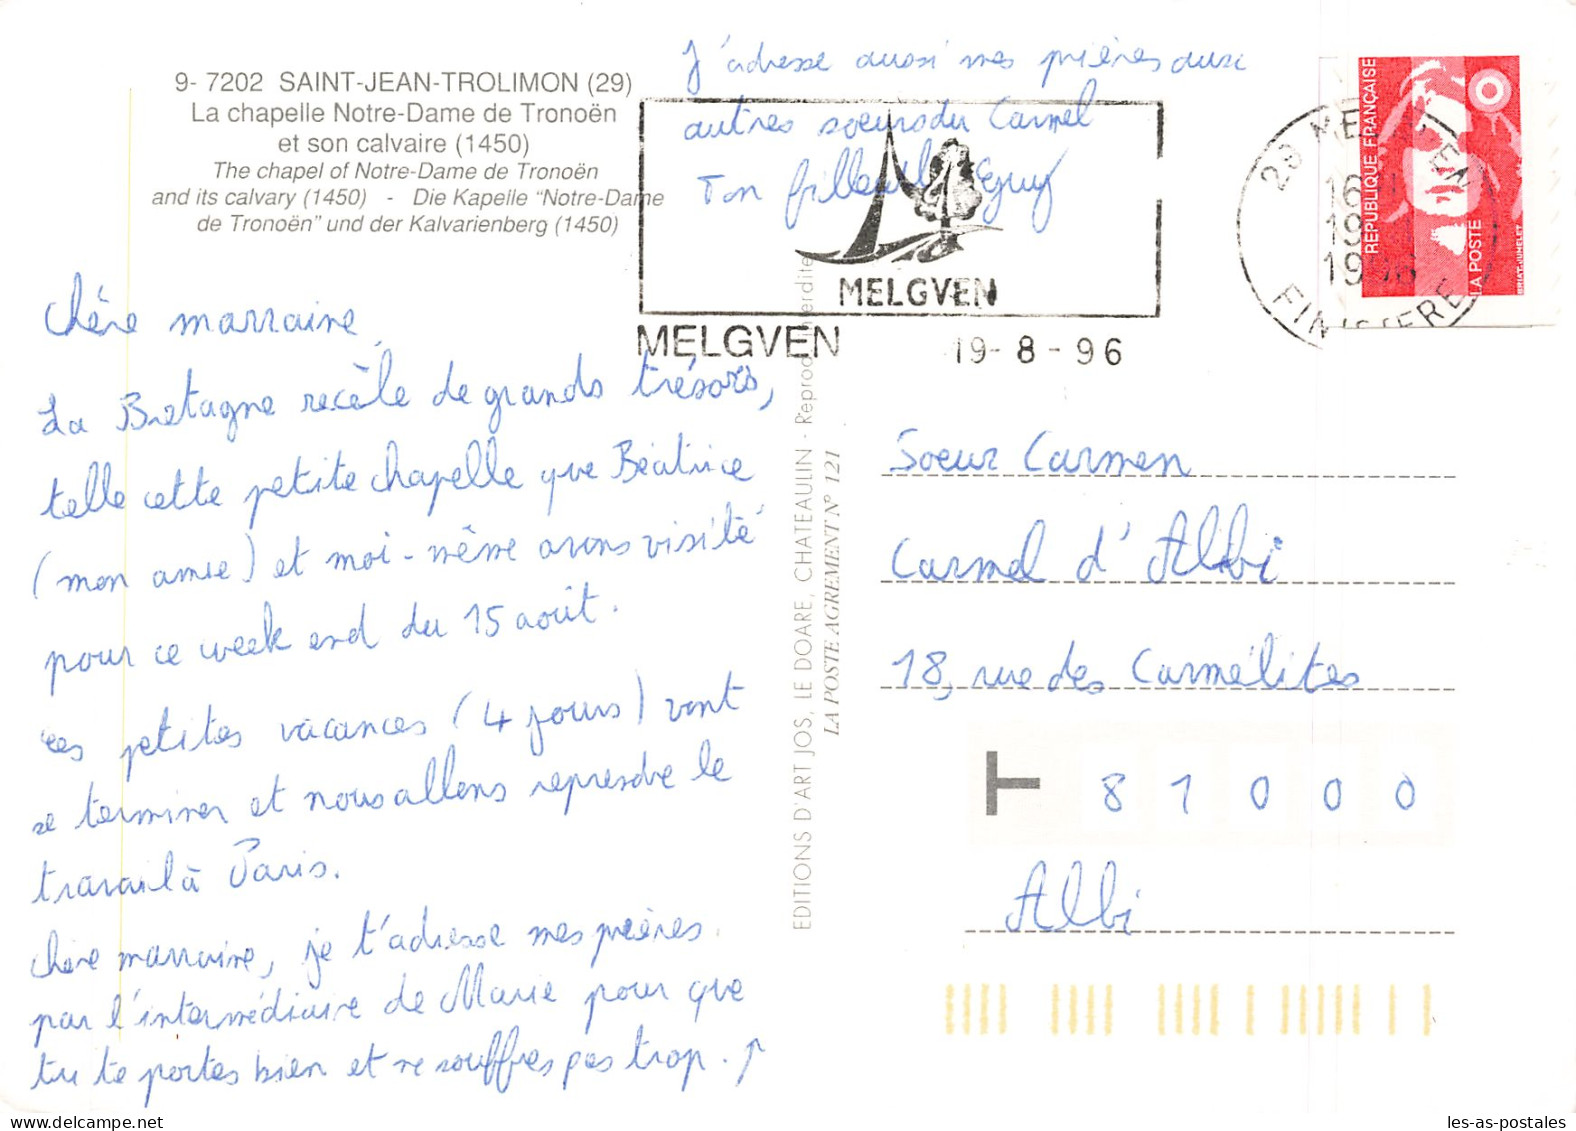 9- 7202 SAINT-JEAN-TROLIMON (29)
La chapelle Notre-Dame de Tronoën
et son calvaire (1450)
The chapel of Notre-Dame de Tronoën
and its calvary (1450) - Die Kapelle "Notre-Dame
de Tronoën" und der Kalvarienberg (1450)
Chère marraine,
La Bretagne recèle de grands trésors,
telle cette petite chapelle que Béatrice
(mon amie) et moi-même avons visité
pour ce week end du 15 août.
Ces petites vacances (4 jours) vont
se terminer et nous allons reprendre le
travail à Paris.
Chère marraine, je t'adresse mes prières
par l'intermédiaire de Marie pour que
tu te portes bien et ne souffres pas trop.
J'adresse aussi mes prières aux
autres soeurs du Carmel
Ton filleul, Eguy
MELGVEN
MELGVEN 19-8-96
29 MELGVEN
16H
19-8
1996
FINISTERE
REPUBLIQUE FRANÇAISE
LA POSTE
BRIAT-JUMELET
EDITIONS D'ART JOS, LE DOARE, CHATEAULIN - Reprod. interdite
LA POSTE AGREMENT N° 121
Soeur Carmen
Carmel d'Albi
18, rue des Carmélites
T 81000
Albi
les-as-postales